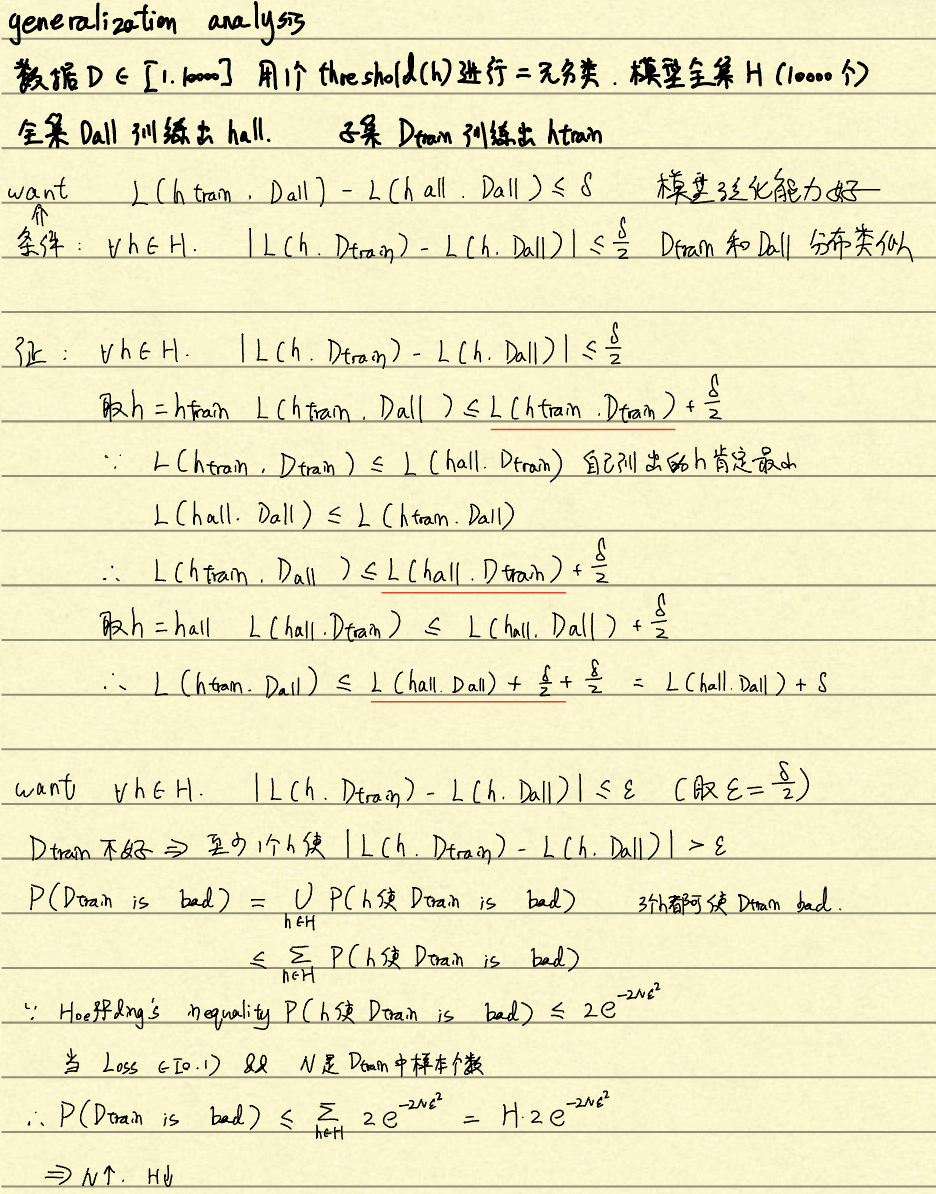 generalization analysis
数据 D ∈ [1.10000] 用1个 threshold(h)进行二元分类. 模型全集 H (10000个)
全集 Dall 训练出 hall. 子集 Dtrain 训练出 htrain
want L(htrain, Dall) - L(hall. Dall) ≤ δ 模型泛化能力好
⇑
条件: ∀h∈H. |L(h. Dtrain) - L(h. Dall)| ≤ δ/2 Dtrain 和 Dall 分布类似
证: ∀h∈H. |L(h. Dtrain) - L(h. Dall)| ≤ δ/2
取h=htrain L(htrain, Dall) ≤ L(htrain.Dtrain) + δ/2
∵ L(htrain, Dtrain) ≤ L(hall. Dtrain) 自己训出的h肯定最小
L(hall. Dall) ≤ L(htran. Dall)
∴ L(htrain, Dall) ≤ L(hall.Dtrain) + δ/2
取h=hall L(hall.Dtrain) ≤ L(hall. Dall) + δ/2
∴ L(htran. Dall) ≤ L(hall. Dall) + δ/2 + δ/2 = L(hall.Dall) + δ
want ∀h∈H. |L(h. Dtrain) - L(h. Dall)| ≤ ε (取 ε = δ/2)
Dtrain 不好 ⇒ 至少1个h使 |L(h. Dtrain) - L(h. Dall)| > ε
P(Dtrain is bad) = ∪h∈H P(h使 Dtrain is bad) 3个h都可使 Dtran bad.
≤ Σh∈H P(h使 Dtran is bad)
∵ Hoeffding's inequality P(h使 Dtrain is bad) ≤ 2e^{-2Nε²}
当 Loss ∈[0.1) && N是 Dtran中样本个数
∴ P(Dtrain is bad) ≤ Σh∈H 2e^{-2Nε²} = H·2e^{-2Nε²}
⇒ N↑. H↓